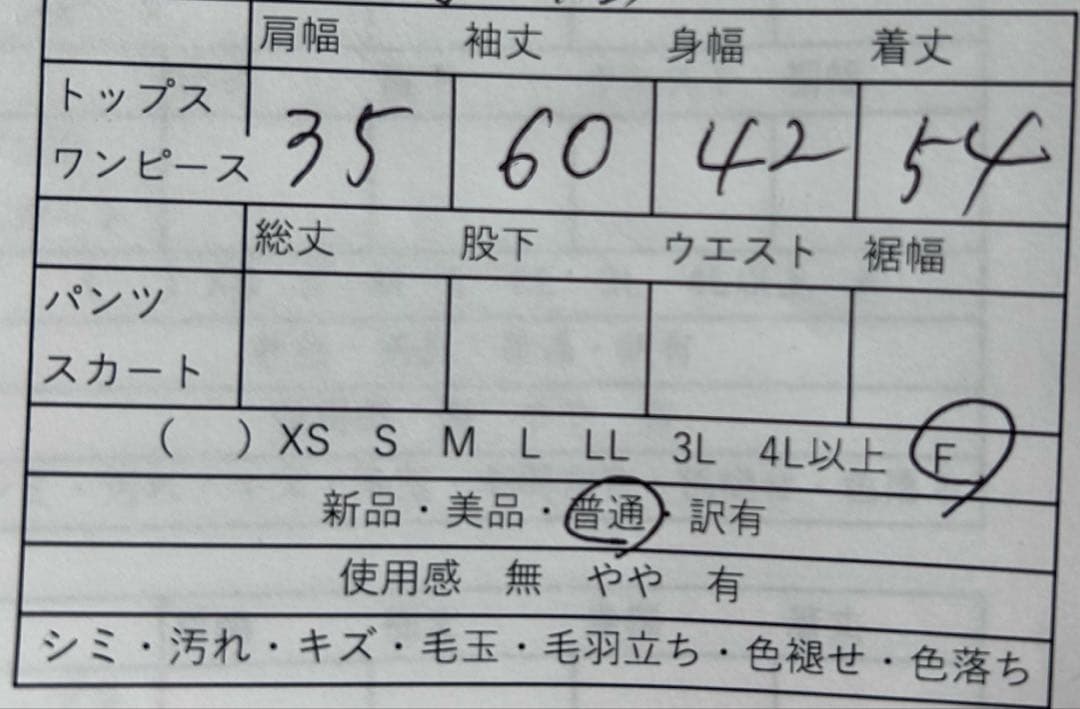 肩幅 袖丈 身幅 着丈
トップス
ワンピース 35 60 42 54
総丈 股下 ウエスト 裾幅
パンツ
スカート
（　）XS S M L LL 3L 4L以上 F
新品・美品・普通・訳有
使用感 無 やや 有
シミ・汚れ・キズ・毛玉・毛羽立ち・色褪せ・色落ち